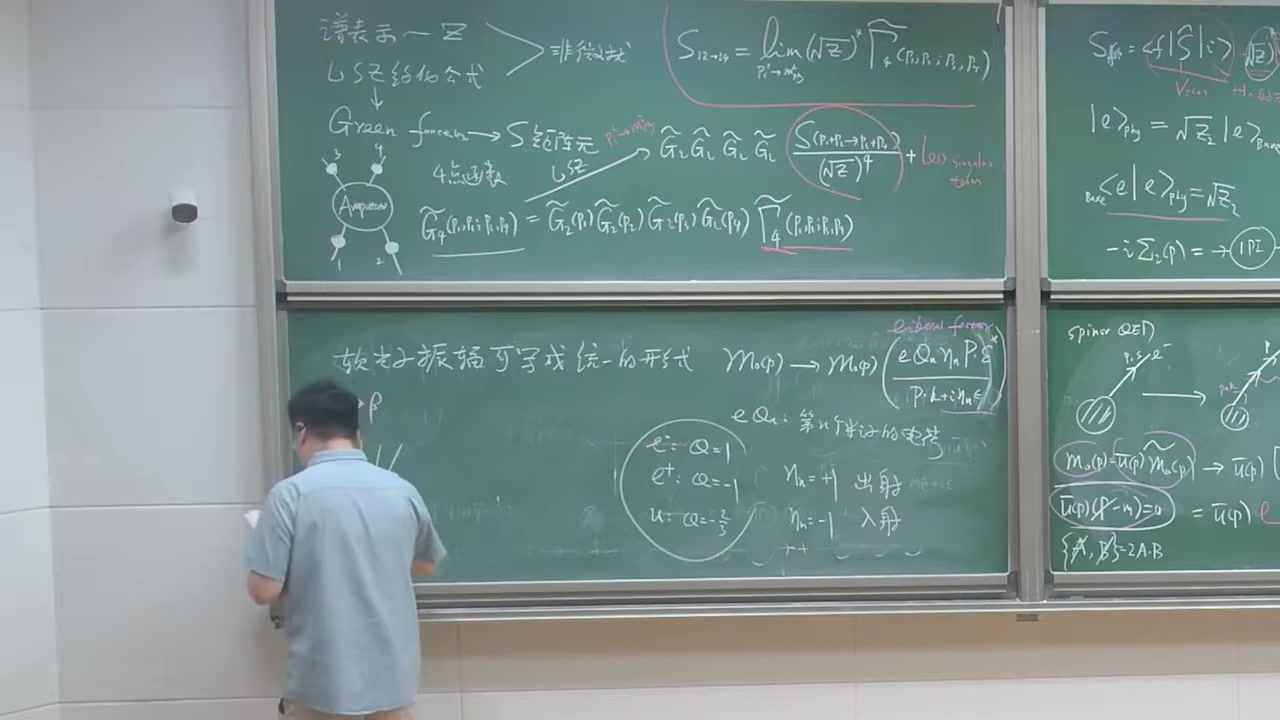 谱表示 — Z
LSZ约化公式
非微扰
Green function → S矩阵元
4点函数
LSZ
3 4
Amputated
1 2
S₁₂→₃₄ = lim (√Z)⁴ Γ̃₄(P₁,P₂;P₃,P₄)
G̃₂ G̃₂ G̃₂ G̃₂ S(P₁+P₂→P₃+P₄)/(√Z)⁴ + Less singular term
G̃₄(P₁,P₂;P₃,P₄) = G̃₂(P₁) G̃₂(P₂) G̃₂(P₃) G̃₂(P₄) Γ̃₄(P₁,P₂;P₃,P₄)
= <f|Ŝ|i>
|e>phy = √Z₂ |e>Bare
Bare<e|e>phy = √Z₂
-iΣ₂(p) = → 1PI
软光子振幅可写成统一的形式
M₀(p) → M₀(p) (eQₙηₙ P·ε* / P·k+iηₙε)
eikonal factor
β
eQₙ: 第n个粒子的电荷
e⁻: Q=1
e⁺: Q=-1
u: Q=-2/3
ηₙ=+1 出射
ηₙ=-1 入射
spinor QED
P,s e⁻
P
M₀(p)=ū(p)M̃₀(p) → ū(p)
ū(p)(p̸-m)=0 = ū(p)
{A̸, B̸}=2A·B